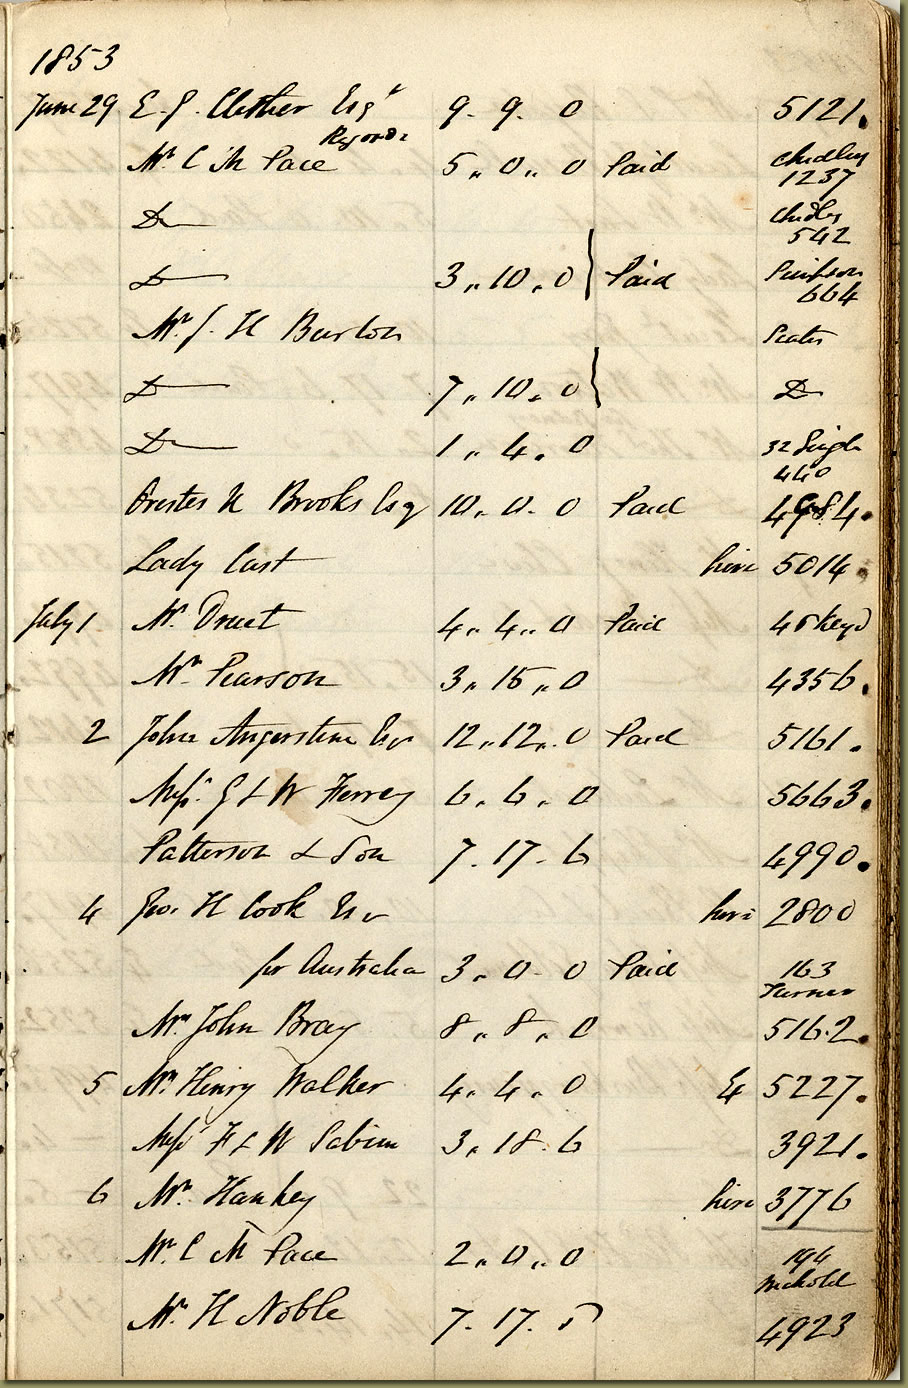 1853
June 29 E. J. Clother Esqr 9. 9. 0 5121.
Mr C M Pace 5 „ 0 „ 0 Paid Chidley
1237
Do Chidley
542
Do 3 „ 10 „ 0 } Paid Simpson
664
Mr J. H Burton Scates
Do 7 „ 10 „ 0 } Do
Do 1 „ 4 „ 0 32 Single
440
Orestes N Brooks Esq 10 „ 0 . 0 Paid 4984.
Lady East hire 5014.
July 1 Mr. Druet 4 „ 4 „ 0 Paid 45 Keyd
Mr Pearson 3 „ 15 „ 0 4356.
2 John Angerstine Esqr 12 „ 12 „ 0 Paid 5161.
Messrs. G & W Ferrey 6 „ 6 „ 0 5663.
Patterson & Son 7 . 17 . 6 4990.
4 Geo. H Cook Esqr hire 2800
for Australia 3 „ 0 . 0 Paid 163
Turner
Mr John Bray 8 „ 8 „ 0 5162.
5 Mr Henry Walker 4 „ 4 „ 0 5227.
Messrs F & W Sabine 3 „ 18 . 6 3921.
6 Mr. Hankey hire 3776
Mr. C M Pace 2 „ 0 „ 0 194
Nickold
Mr. H Noble 7 . 17 . 4923